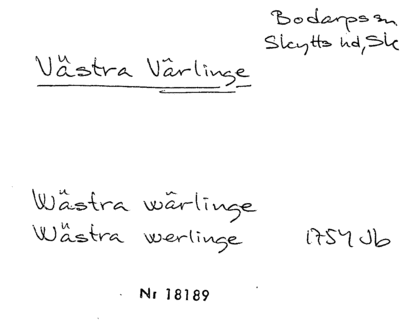 Bodarps sn
Skytts hd, Sk
Västra Värlinge
Wästra wärlinge
Wästra werlinge 1754 Jb
Nr 18189